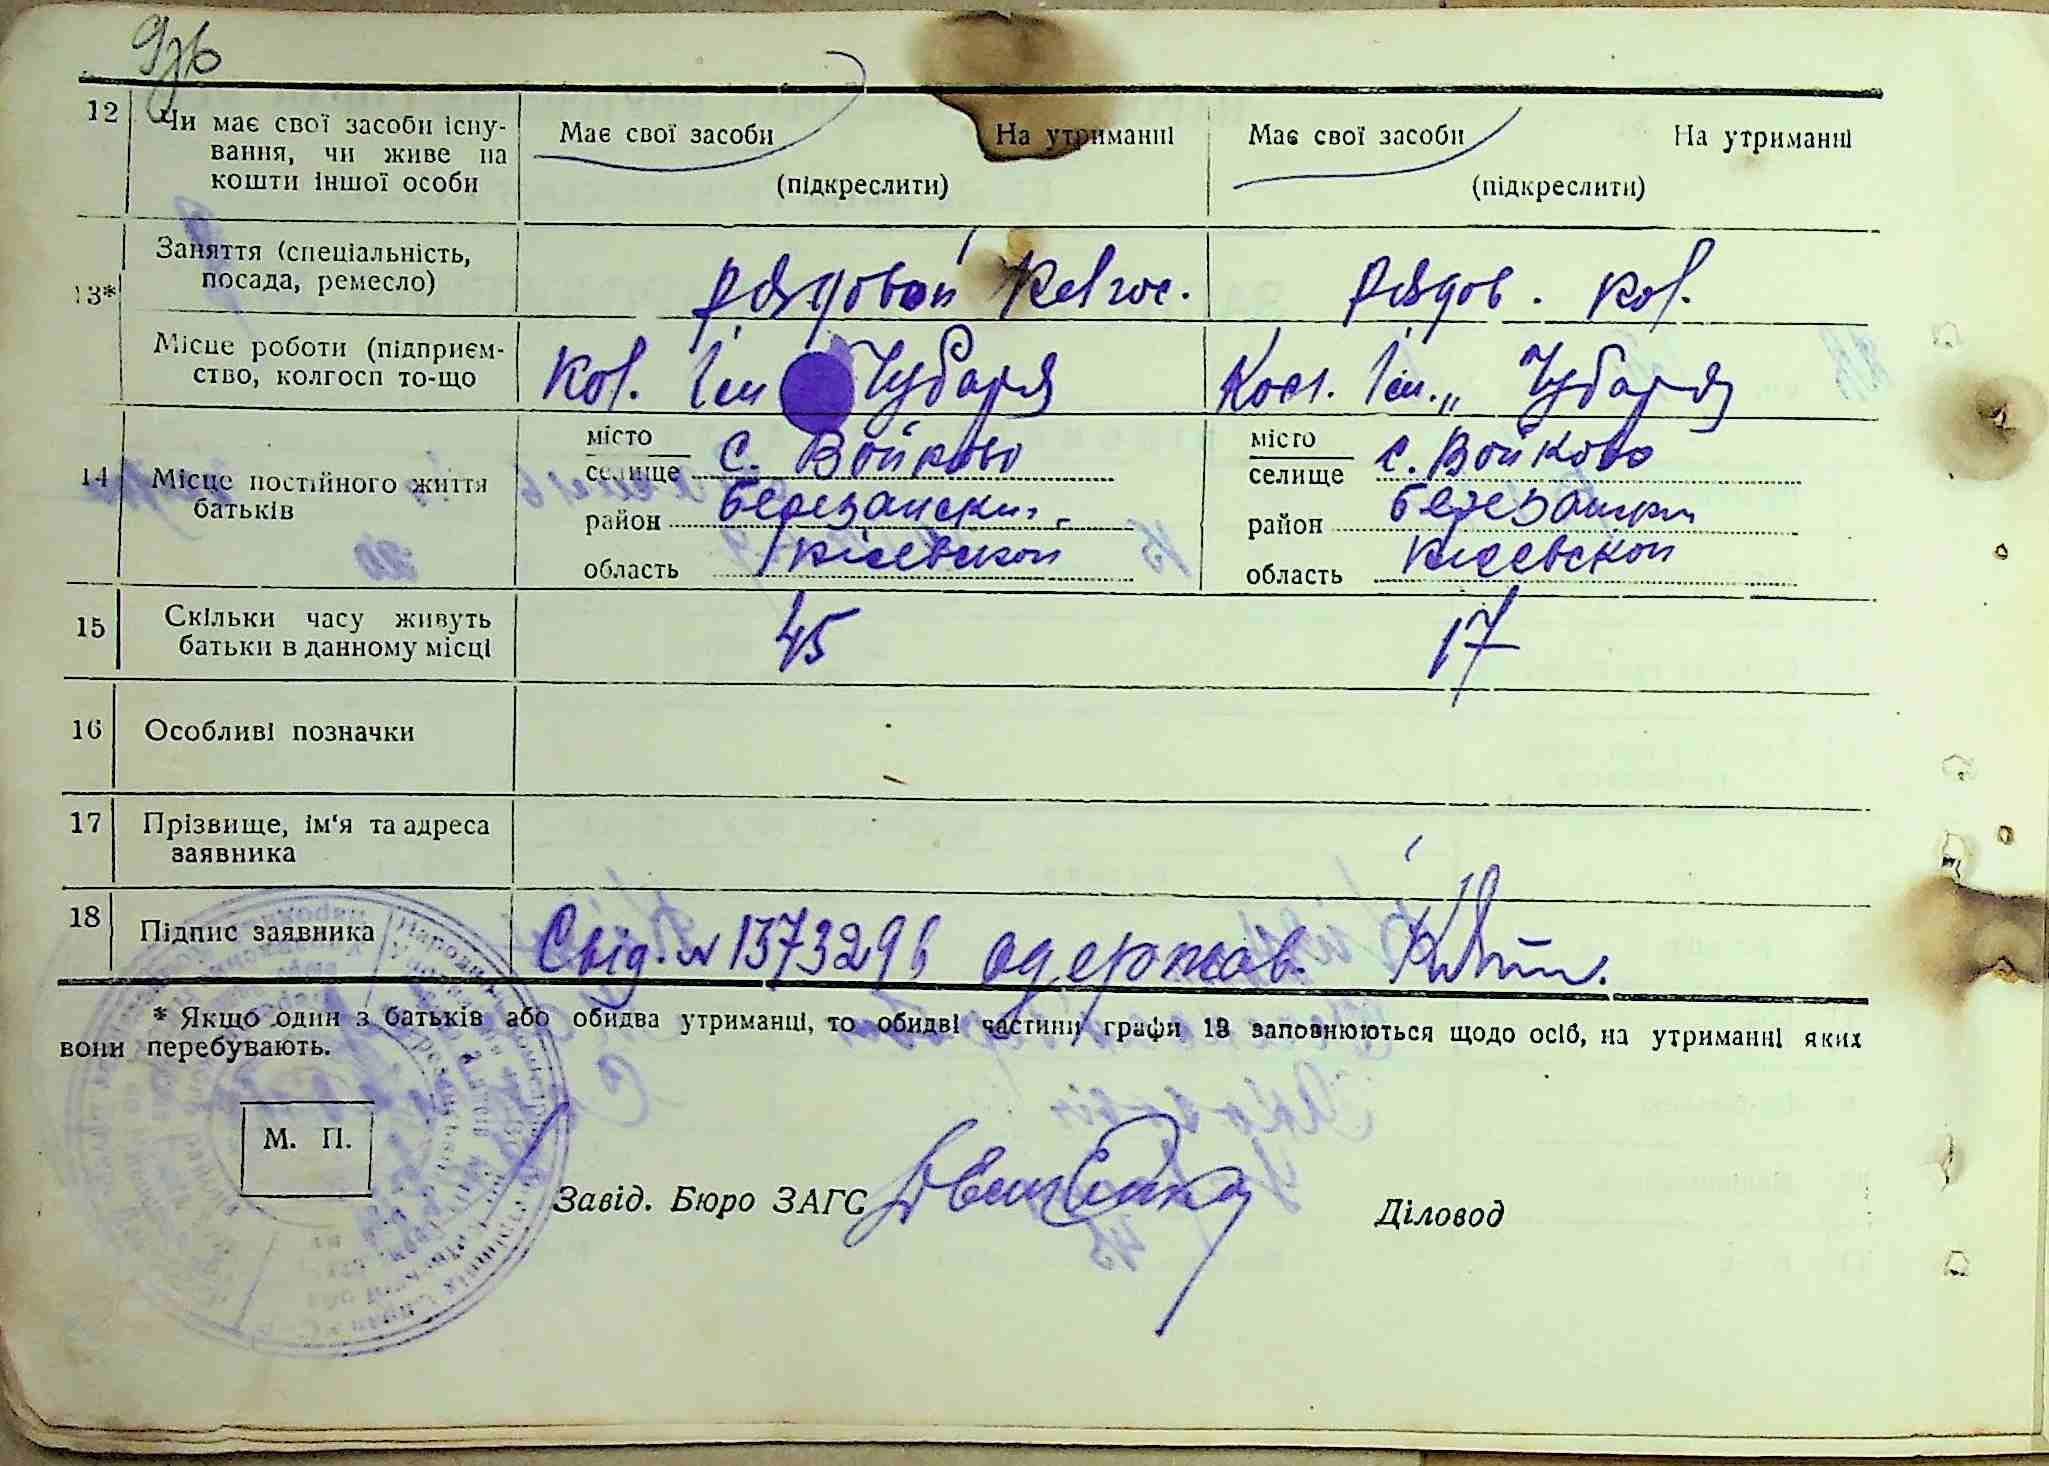 9зв
12 Чи має свої засоби існу- Має свої засоби На утриманні Має свої засоби На утриманні
вання, чи живе на
кошти іншої особи (підкреслити) (підкреслити)
13* Заняття (спеціальність,
посада, ремесло) рядовой колгос. рядов. кол.
Місце роботи (підприєм-
ство, колгосп то-що Кол. Ім Чубаря Кол. Ім. „ Чубаря
14 Місце постійного життя
батьків
місто
селище с. Войково
район Березански
область Киевской
місто
селище с. Войково
район Березанск
область Киевской
15 Скільки часу живуть
батьки в данному місці 45 17
16 Особливі позначки
17 Прізвище, ім'я та адреса
заявника
18 Підпис заявника Свід. № 1373296 одержав.
* Якщо один з батьків або обидва утриманці, то обидві частини графи 13 заповнюються щодо осіб, на утриманні яких
вони перебувають.
М. П.
Завід. Бюро ЗАГС Діловод